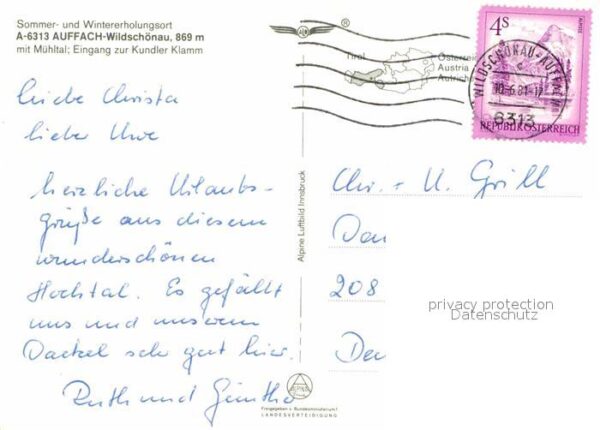 Sommer- und Wintererholungsort
A-6313 AUFFACH-Wildschönau, 869 m
mit Mühltal; Eingang zur Kundler Klamm
Liebe Christa
lieber Uwe
herzliche Urlaubs-
grüße aus diesem
wunderschönen
Hochtal. Es gefällt
uns und unserem
Dackel sehr gut hier.
Ruth und Günther
Alpine Luftbild Innsbruck
Freigegeben v. Bundesministerium f.
LANDESVERTEIDIGUNG
®
Tirol
Österreich
Austria
Autriche
4S
WILDSCHÖNAU-AUFFACH
10.-6.81-17
6313
REPUBLIK ÖSTERREICH
Chr. + U. Grill
208
privacy protection
Datenschutz